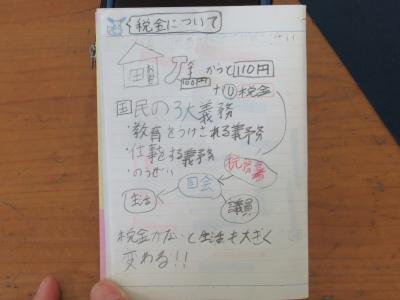 税金について
お店
かって 110円
100円
+⑩税金
国民の3大義務
・教育をうけされる義務
・仕事をする義務
・のうぜい
税务署
国会
生活
議員
税金がないと生活も大きく
変わる!!